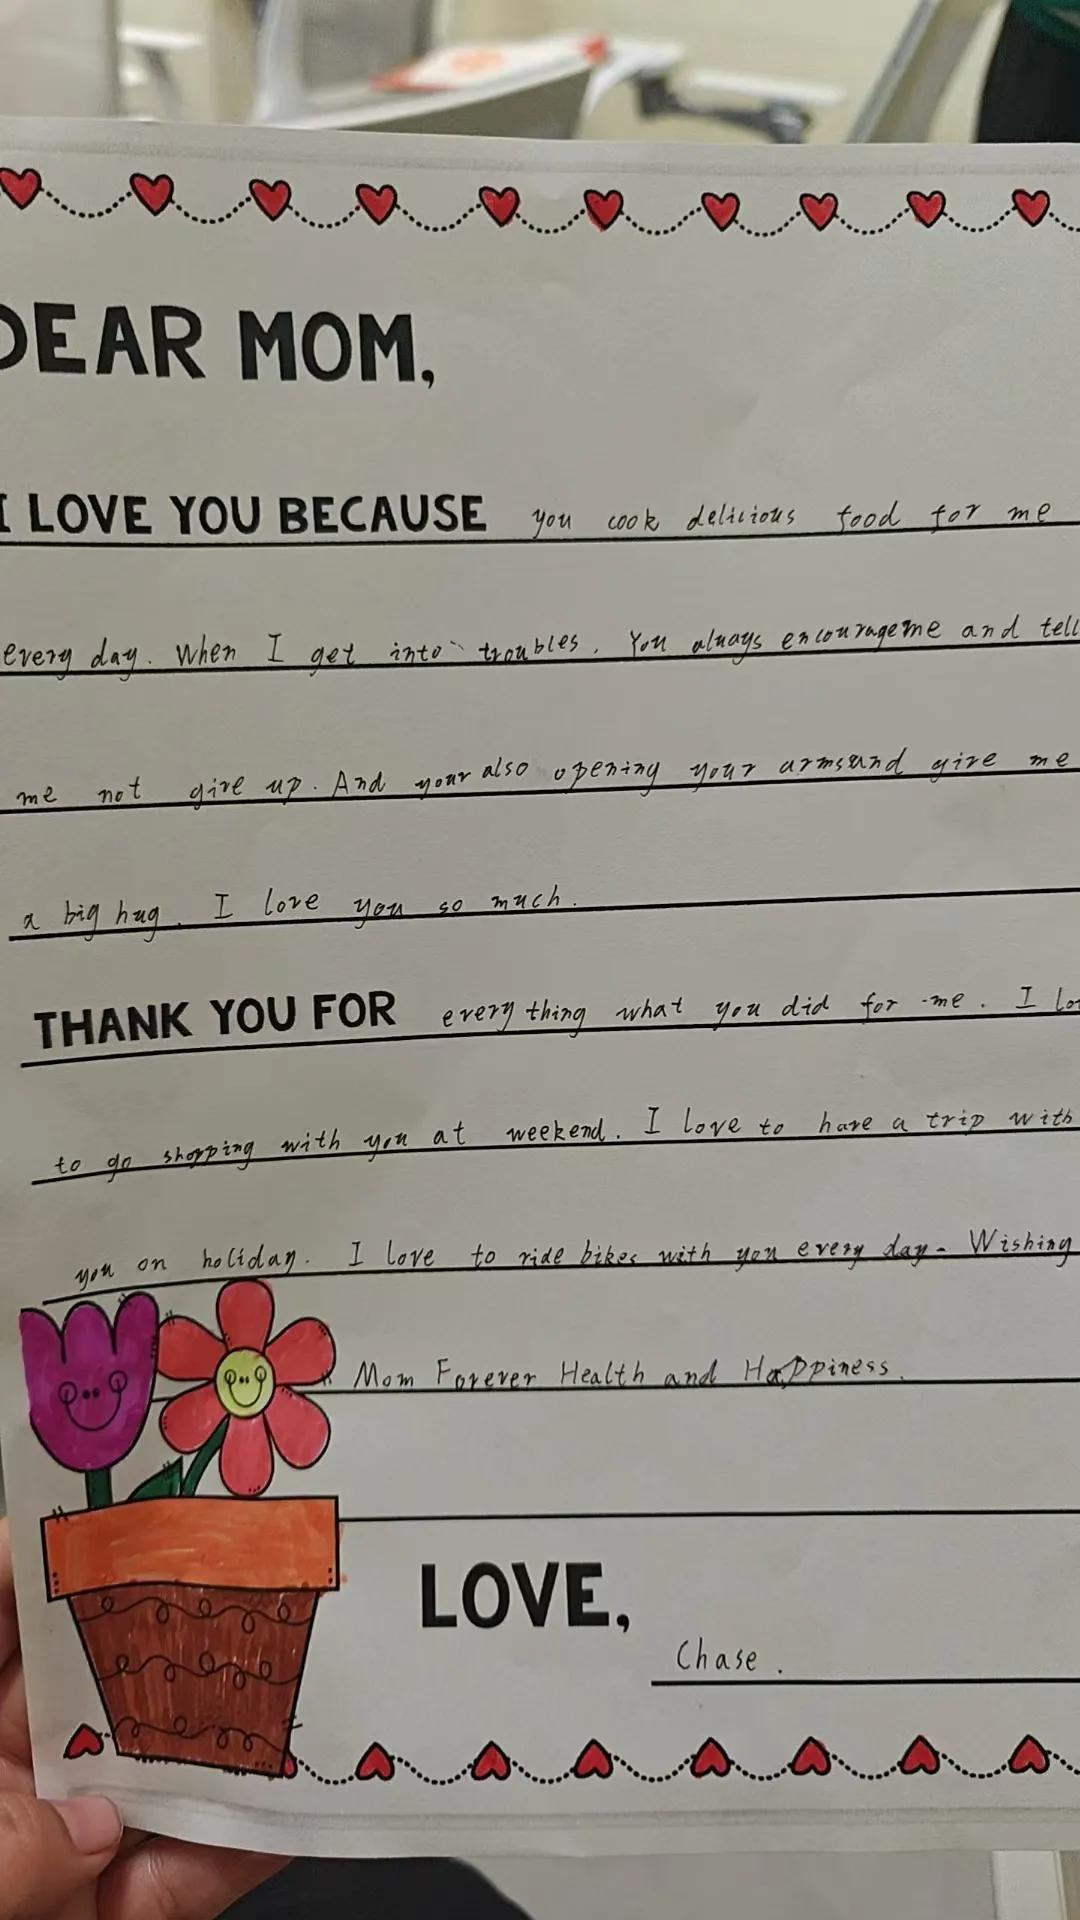 DEAR MOM,
I LOVE YOU BECAUSE you cook delicious food for me
every day. When I get into troubles. You always encourage me and tell
me not give up. And your also opening your arms and give me
a big hug. I love you so much.
THANK YOU FOR every thing what you did for me. I
to go shopping with you at weekend. I love to have a trip with
you on holiday. I love to ride bikes with you every day. Wishing
Mom Forever Health and Happiness.
LOVE,
Chase.